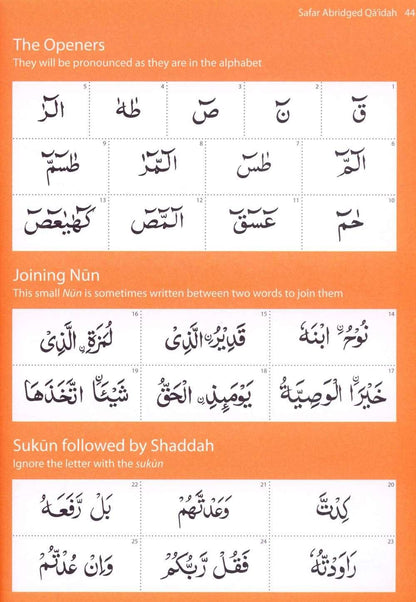 Safar Abridged Qā'idah 44
The Openers
They will be pronounced as they are in the alphabet
1 قٓ 2 نٓ 3 صٓ 4 طٰهٰ 5 الٓرٰ
6 الٓمّٓ 7 طٰسٓ 8 الٓمّٓرٰ 9 طٰسٓمّٓ
10 حٰمٓ 11 عٓسٓقٓ 12 الٓمّٓصٓ 13 كٓهٰيٰعٓصٓ
Joining Nūn
This small Nūn is sometimes written between two words to join them
14 نُوْحُ ۨ ابْنَهٗ 15 قَدِيْرُ ۨ الَّذِىْ 16 لُمَزَةِ ۨ الَّذِىْ
17 خَيْرَا ۨ الْوَصِيَّةُ 18 يَوْمَئِذِ ۨ الْحَقُّ 19 شَيْئَا ۨ اتَّخَذَهَا
Sukūn followed by Shaddah
Ignore the letter with the sukūn
20 كِدْتَّ 21 وَعَدْتَّهُمْ 22 بَلْ رَّفَعَهُ
23 رَاوَدْتُّهٗ 24 فَقُلْ رَّبُّكُمْ 25 وَاِنْ عُدْتُّمْ